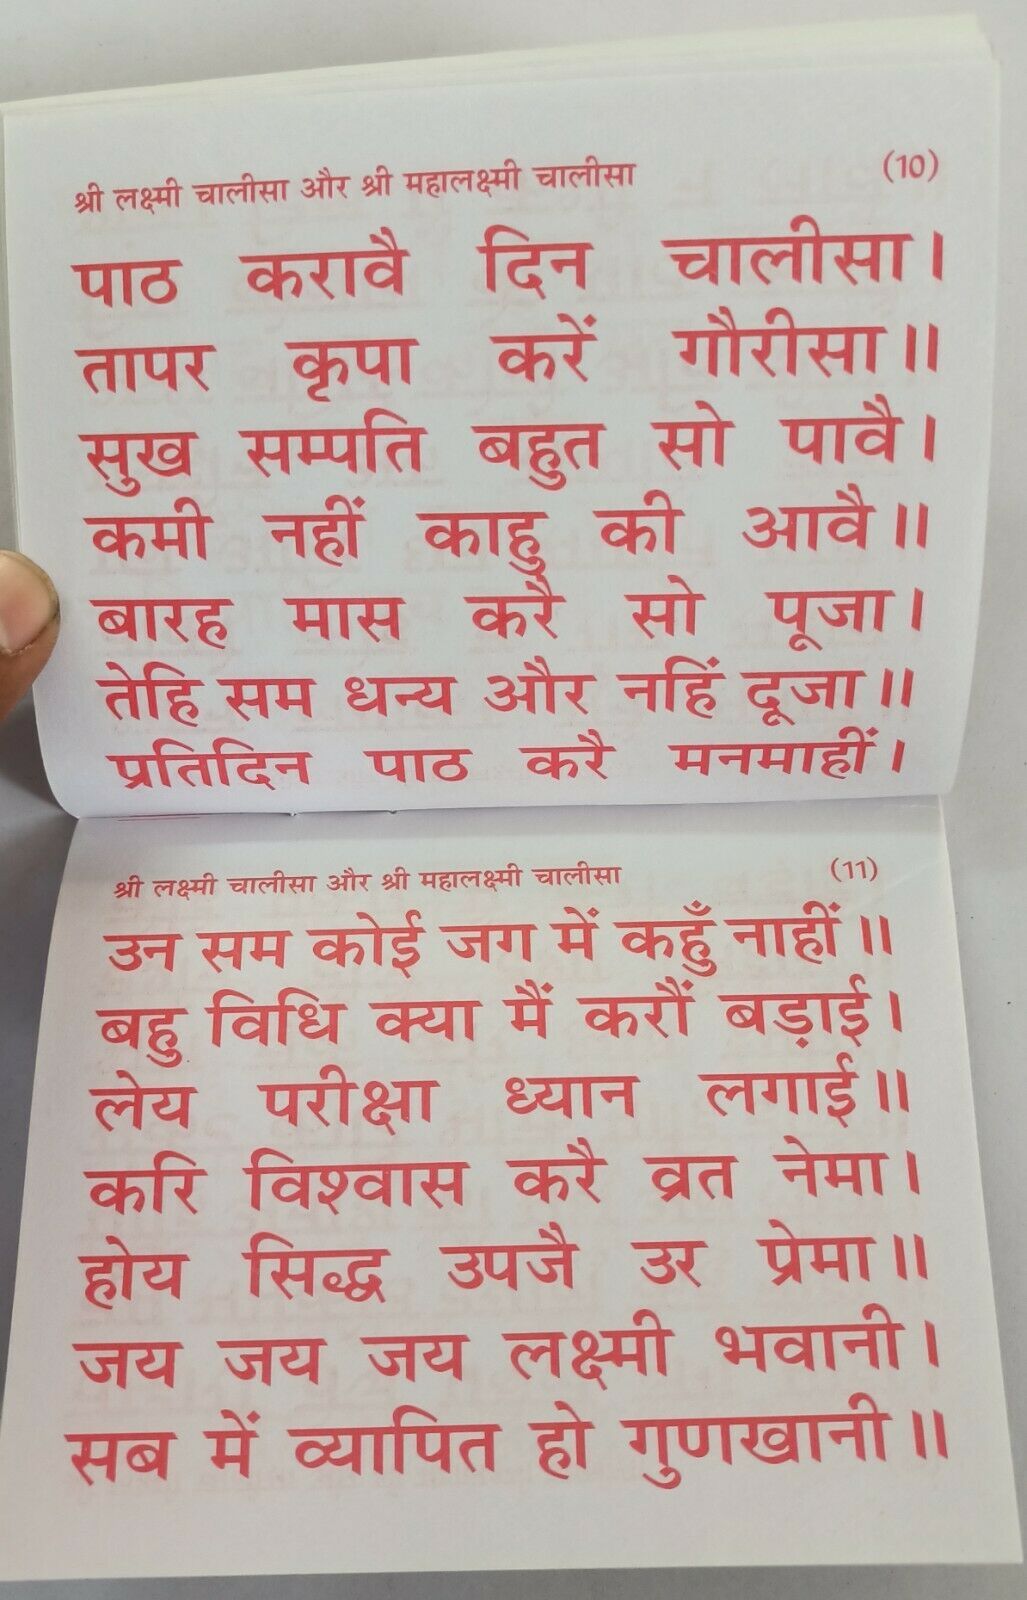 श्री लक्ष्मी चालीसा और श्री महालक्ष्मी चालीसा (10)
पाठ करावै दिन चालीसा।
तापर कृपा करें गौरीसा॥
सुख सम्पति बहुत सो पावै।
कमी नहीं काहु की आवै॥
बारह मास करै सो पूजा।
तेहि सम धन्य और नहिं दूजा॥
प्रतिदिन पाठ करै मनमाहीं।
श्री लक्ष्मी चालीसा और श्री महालक्ष्मी चालीसा (11)
उन सम कोई जग में कहुँ नाहीं॥
बहु विधि क्या मैं करौं बड़ाई।
लेय परीक्षा ध्यान लगाई॥
करि विश्वास करै व्रत नेमा।
होय सिद्ध उपजै उर प्रेमा॥
जय जय जय लक्ष्मी भवानी।
सब में व्यापित हो गुणखानी॥